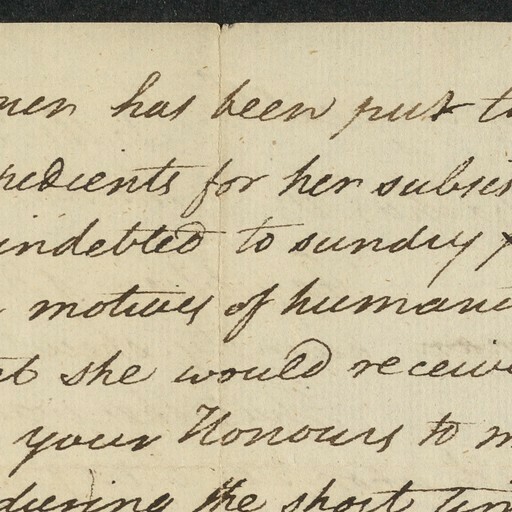 men has been put to
pedients for her subsis
indebted to sundry
motives of humani
at she would receive
your Honours to m
during the short tim